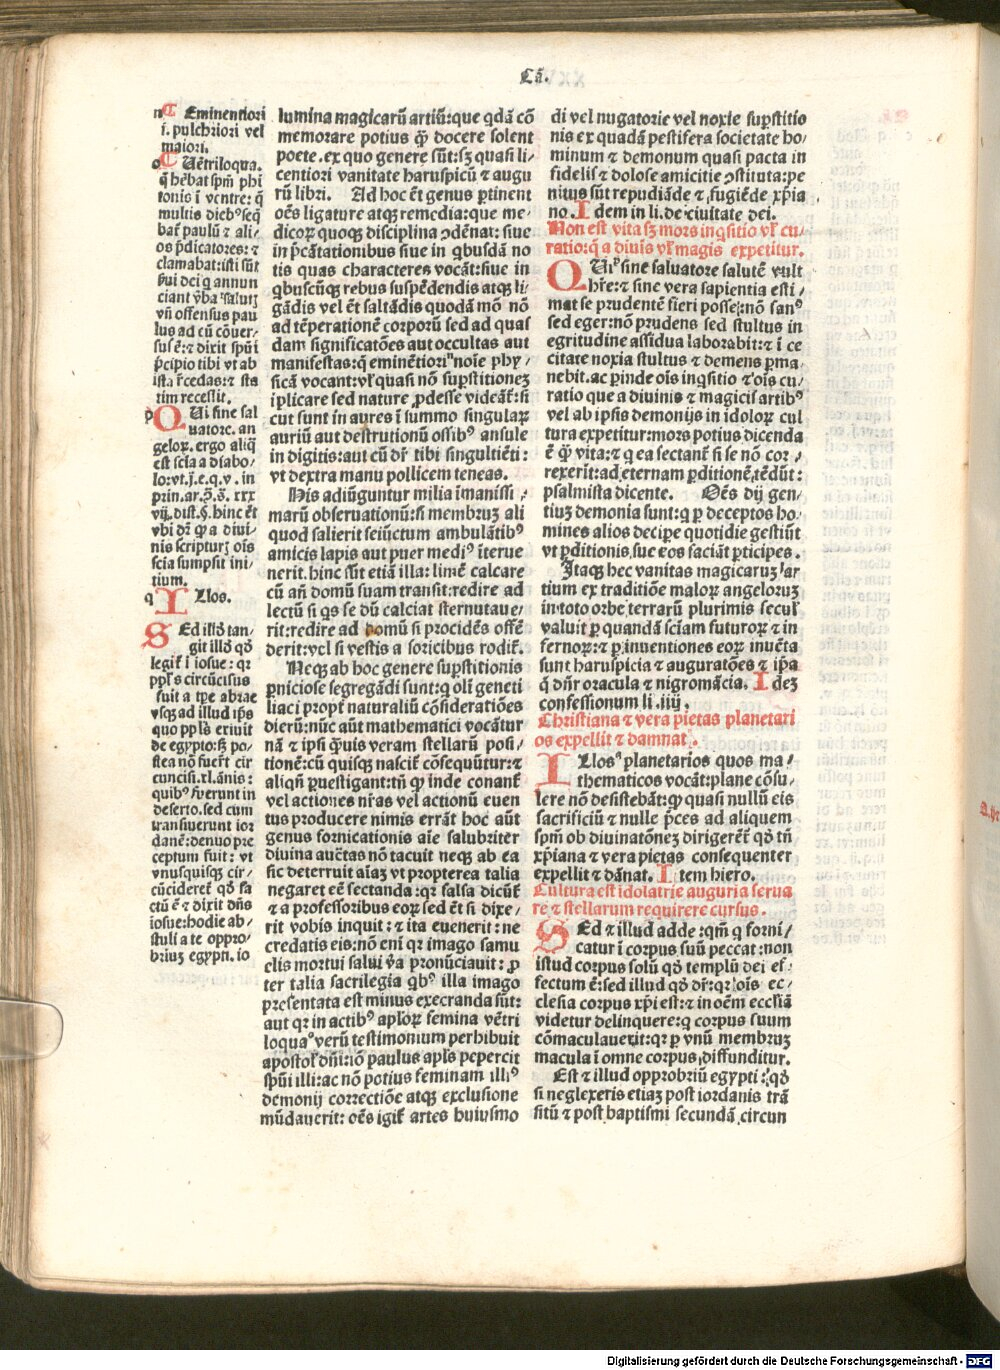 Cā.
n ¶ Eminentiori
i. pulchriori vel
maiori.
o ¶ Uētriloqua.
q̄ hēbat spm̄ phi
tonis ī ventre: q̄
multis dieb⁹ seq̄
bat̄ paulū ⁊ ali/
os p̄dicatores: ⁊
clamabat: isti sūt
ciant v̄ba salutꝫ
vn̄ offensus pau
lus ad eū cōuer/
sus ē: ⁊ dixit spūi
p̄cipio tibi vt ab
ista r̄cedas: ⁊ sta
tim recessit.
p QUi sine sal
uatore. an
geloꝝ. ergo aliq̄
est scīa a diabo/
lo: vt. j. e. q. v. in
vij. dist. §. hinc ēt
vbi dr̄ ꝙ a diui/
nis scripturꝭ oīs
scīa sumpsit ini/
tium.
q ILlos.
SEd illḋ tan/
git illḋ qḋ
legit̄ ī iosue: qꝛ
ppl's circūcisus
fuit a tp̄e abrae
vsqꝫ ad illud ip̄s
quo ppl's exiuit
de egypto: sꝫ po/
stea nō fuer̄t cir
cuncisi. xl. ānis:
quib⁹ fuerunt in
deserto. sed cum
transiuerunt ior
danē: denuo pre
ceptum fuit: vt
vnusquisqꝫ cir/
cūcideret̄ qḋ fa
ctū ē ⁊ dixit dn̄s
iosue: hodie ab/
stuli a te oppro/
brium egypti. io
lumina magicaꝝ artiū: que qdā cō
memorare potius q̄ docere solent
poete. ex quo genere sūt: sꝫ quasi li/
centiori vanitate haruspicū ⁊ augu
rū libri. Ad hoc ēt genus ꝑtinent
oēs ligature atqꝫ remedia: que me/
dicoꝝ quoqꝫ disciplina ↄdēnat: siue
in p̄cātationibus siue in qbusdā no
tis quas characteres vocāt: siue in
qbuscūqꝫ rebus suspēdendis atqꝫ li/
gādis vel ēt saltādis quodā mō nō
ad tēperationē corporū sed ad quas
dam significatōes aut occultas aut
manifestas: q̄ eminētiori noīe phy/
sicā vocant: vt̄ quasi nō suꝑstitionez
īplicare sed nature ꝓdesse videāt̄: si
cut sunt in aures ī summo singulaꝝ
auriū aut destrutionū ossib⁹ ansule
in digitis: aut cū dr̄ tibi singultiēti:
vt dextra manu pollicem teneas.
His adiūguntur milia īmanissi/
marū obseruationū: si membruꝫ ali
quod salierit seiūctum ambulātib⁹
amicis lapis aut puer medi⁹ īterue
nerit. hinc sūt etiā illa: limē calcare
cū an̄ domū suam transit: redire ad
lectū si qs se dū calciat sternutaue/
rit: redire ad domū si procidēs offē
derit: vel si vestis a soricibus rodit̄.
Neqꝫ ab hoc genere suꝑstitionis
ꝑniciose segregādi sunt: q oli geneti
liaci propt̄ naturaliū cōsideratiōes
dierū: nūc aūt mathematici vocātur
nā ⁊ ipsi q̄uis veram stellarū posi/
tionē: cū quisqꝫ nascit̄ cōsequūtur: ⁊
aliqn̄ ꝑuestigant: tn̄ ꝙ inde conant̄
vel actiones nr̄as vel actionū euen
tus producere nimis errāt hoc aūt
genus fornicationis aīe salubriter
diuina auc̄tas nō tacuit neqꝫ ab ea
sic deterruit aīaꝫ vt propterea talia
negaret eē sectanda: qꝛ falsa dicūt̄
⁊ a professoribus eoꝝ sed ēt si dixe/
rit vobis inquit: ⁊ ita euenerit: ne
credatis eis: nō enī qꝛ imago samu
elis mortui saluī v̄a pronūciauit: ꝓ
ter talia sacrilegia qb⁹ illa imago
presentata est minus execranda sūt:
aut qꝛ in actib⁹ apl'oꝝ femina vētri
loqua verū testimonium perhibuit
apostol' dn̄i: iō paulus apl's pepercit
spūi illi: ac nō potius feminam illi⁹
demonij correctiōe atqꝫ exclusione
mūdauerit: oēs igit̄ artes huiusmo
di vel nugatorie vel noxie suꝑstitio
nis ex quadā pestifera societate ho/
minum ⁊ demonum quasi pacta in
fidelis ⁊ dolose amicitie ↄstituta: pe
nitus sūt repudiāde ⁊ fugiēde xp̄ia
no. Idem in li. de ciuitate dei.
Non est vita sꝫ mors inqsitio vt̄ cu/
ratio: q̄ a diuis vt̄ magis expetitur.
QUi sine saluatore salutē vult
h̄re: ⁊ sine vera sapientia esti/
mat se prudentē fieri posse: nō san⁹
sed eger: nō prudens sed stultus in
egritudine assidua laborabit: ⁊ ī ce
citate noxia stultus ⁊ demens ꝑma/
nebit. ac ꝑinde oīs inqsitio ⁊ oīs cu/
ratio que a diuinis ⁊ magicis artib⁹
vel ab ipsis demonijs in idoloꝝ cul
tura expetitur: mors potius dicenda
ē q̄ vita: ⁊ q ea sectant̄ si se nō cor/
rexerīt: ad eternam ꝑditionē tēdūt:
psalmista dicente. Oēs dij gen/
tiuꝫ demonia sunt: q ꝑ deceptos ho/
mines alios decipe quotidie gestiūt
vt ꝑditionis sue eos faciāt ꝑticipes.
Itaqꝫ hec vanitas magicaruꝫ ar
tium ex traditiōe maloꝝ angeloruꝫ
in toto orbe terrarū plurimis secul'
valuit ꝑ quandā sciam futuroꝝ ⁊ in
fernoꝝ: ⁊ ꝑ inuentiones eoꝝ inuēta
sunt haruspicia ⁊ auguratōes ⁊ ip̄a
q̄ dn̄r oracula ⁊ nigromācia. Idez
confessionum li. iiij.
Christiana ⁊ vera pietas planetari
os expellit ⁊ damnat.
ILlos planetarios quos ma/
thematicos vocāt: plane cōsu/
lere nō desistebāt: ꝙ quasi nullū eis
sacrificiū ⁊ nulle p̄ces ad aliquem
spm̄ ob diuinatōnez dirigerēt̄ qḋ tn̄
xp̄iana ⁊ vera pietas consequenter
expellit ⁊ dānat. Item hiero.
Cultura est idolatrie auguria serua
re ⁊ stellarum requirere cursus.
SEd ⁊ illud adde: qm̄ q forni/
catur ī corpus suū peccat: non
istud corpus solū qḋ templū dei ef/
fectum ē: sed illud qḋ dr̄: qꝛ oīs ec/
clesia corpus xp̄i est: ⁊ in oēm eccl'iā
videtur delinquere: q corpus suum
cōmaculauerit: qꝛ ꝑ vnū membruꝫ
macula ī omne corpus diffunditur.
Est ⁊ illud opprobriū egypti: qḋ
si neglexeris etiaꝫ post iordanis trā
sitū ⁊ post baptismi secundā circun
Digitalisierung gefördert durch die Deutsche Forschungsgemeinschaft - DFG